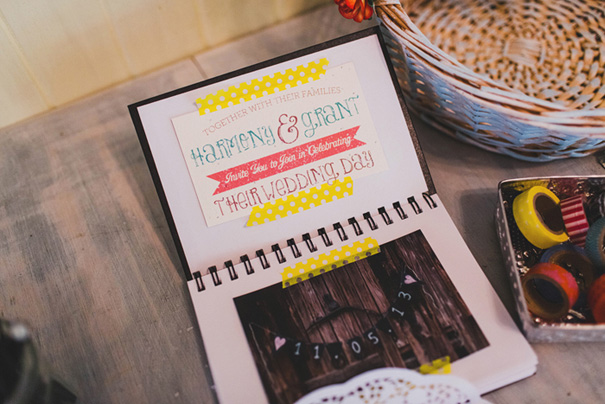 TOGETHER WITH THEIR FAMILIES
HARMENY & GRANT
Invite You to Join in Celebrating
THEIR WEDDING DAY
11.05.13